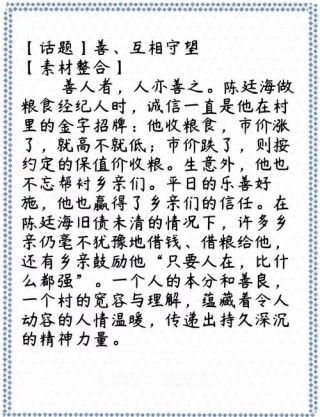 【话题】善、互相守望
【素材整合】
善人者，人亦善之。陈廷海做
粮食经纪人时，诚信一直是他在村
里的金字招牌：他收粮食，市价涨
了，就高不就低；市价跌了，则按
约定的保值价收粮。生意外，他也
不忘帮衬乡亲们。平日的乐善好
施，他也赢得了乡亲们的信任。在
陈廷海旧债未清的情况下，许多乡
亲仍毫不犹豫地借钱、借粮给他，
还有乡亲鼓励他“只要人在，比什
么都强”。一个人的本分和善良，
一个村的宽容与理解，蕴藏着令人
动容的人情温暖，传递出持久深沉
的精神力量。